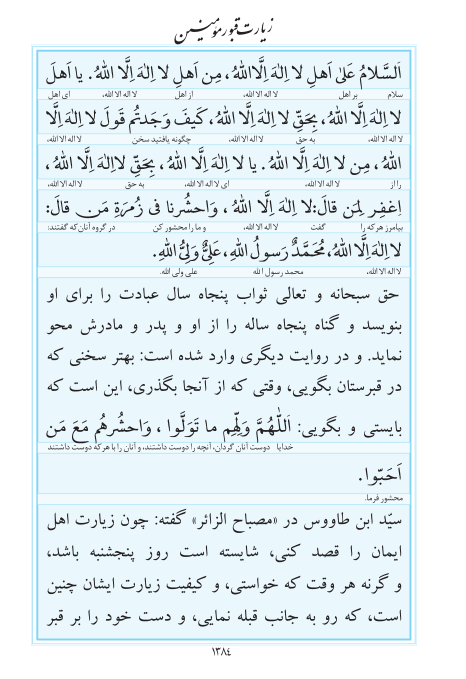 زیارت قبور مؤمنین
اَلسَّلامُ عَلىٰ اَهلِ لا اِلٰهَ اِلَّا اللهُ، مِن اَهلِ لا اِلٰهَ اِلَّا اللهُ. یا اَهلَ
سلام بر اهل لا اله الا الله، از اهل لا اله الا الله، ای اهل
لا اِلٰهَ اِلَّا اللهُ، بِحَقِّ لا اِلٰهَ اِلَّا اللهُ، کَیفَ وَجَدتُم قَولَ لا اِلٰهَ اِلَّا
لا اله الا الله، به حق لا اله الا الله، چگونه یافتید سخن لا اله الا الله،
اللهُ، مِن لا اِلٰهَ اِلَّا اللهُ. یا لا اِلٰهَ اِلَّا اللهُ، بِحَقِّ لااِلٰهَ اِلَّا اللهُ،
را از لا اله الا الله، ای لا اله الا الله، به حق لا اله الا الله،
اِغفِر لِمَن قالَ:لا اِلٰهَ اِلَّا اللهُ ، وَاحشُرنا فی زُمرَةِ مَن قالَ:
بیامرز هرکه را گفت لا اله الا الله، و ما را محشور کن در گروه آنان‌که گفتند:
لا اِلٰهَ اِلَّا اللهُ، مُحَمَّدٌ رَسولُ اللهِ، عَلِیٌّ وَلِیُّ اللهِ.
لا اله الا الله، محمد رسول الله علی ولی الله.
حق سبحانه و تعالی ثواب پنجاه سال عبادت را برای او
بنویسد و گناه پنجاه ساله را از او و پدر و مادرش محو
نماید. و در روایت دیگری وارد شده است: بهتر سخنی که
در قبرستان بگویی، وقتی که از آنجا بگذری، این است که
بایستی و بگویی: اَللّٰهُمَّ وَلِّهِم ما تَوَلَّوا ، وَاحشُرهُم مَعَ مَن
خدایا دوست آنان گردان، آنچه را دوست داشتند، و آنان را با هرکه دوست داشتند
اَحَبّوا.
محشور فرما.
سیّد ابن طاووس در «مصباح الزائر» گفته: چون زیارت اهل
ایمان را قصد کنی، شایسته است روز پنجشنبه باشد،
و گرنه هر وقت که خواستی، و کیفیت زیارت ایشان چنین
است، که رو به جانب قبله نمایی، و دست خود را بر قبر
۱۳۸۴